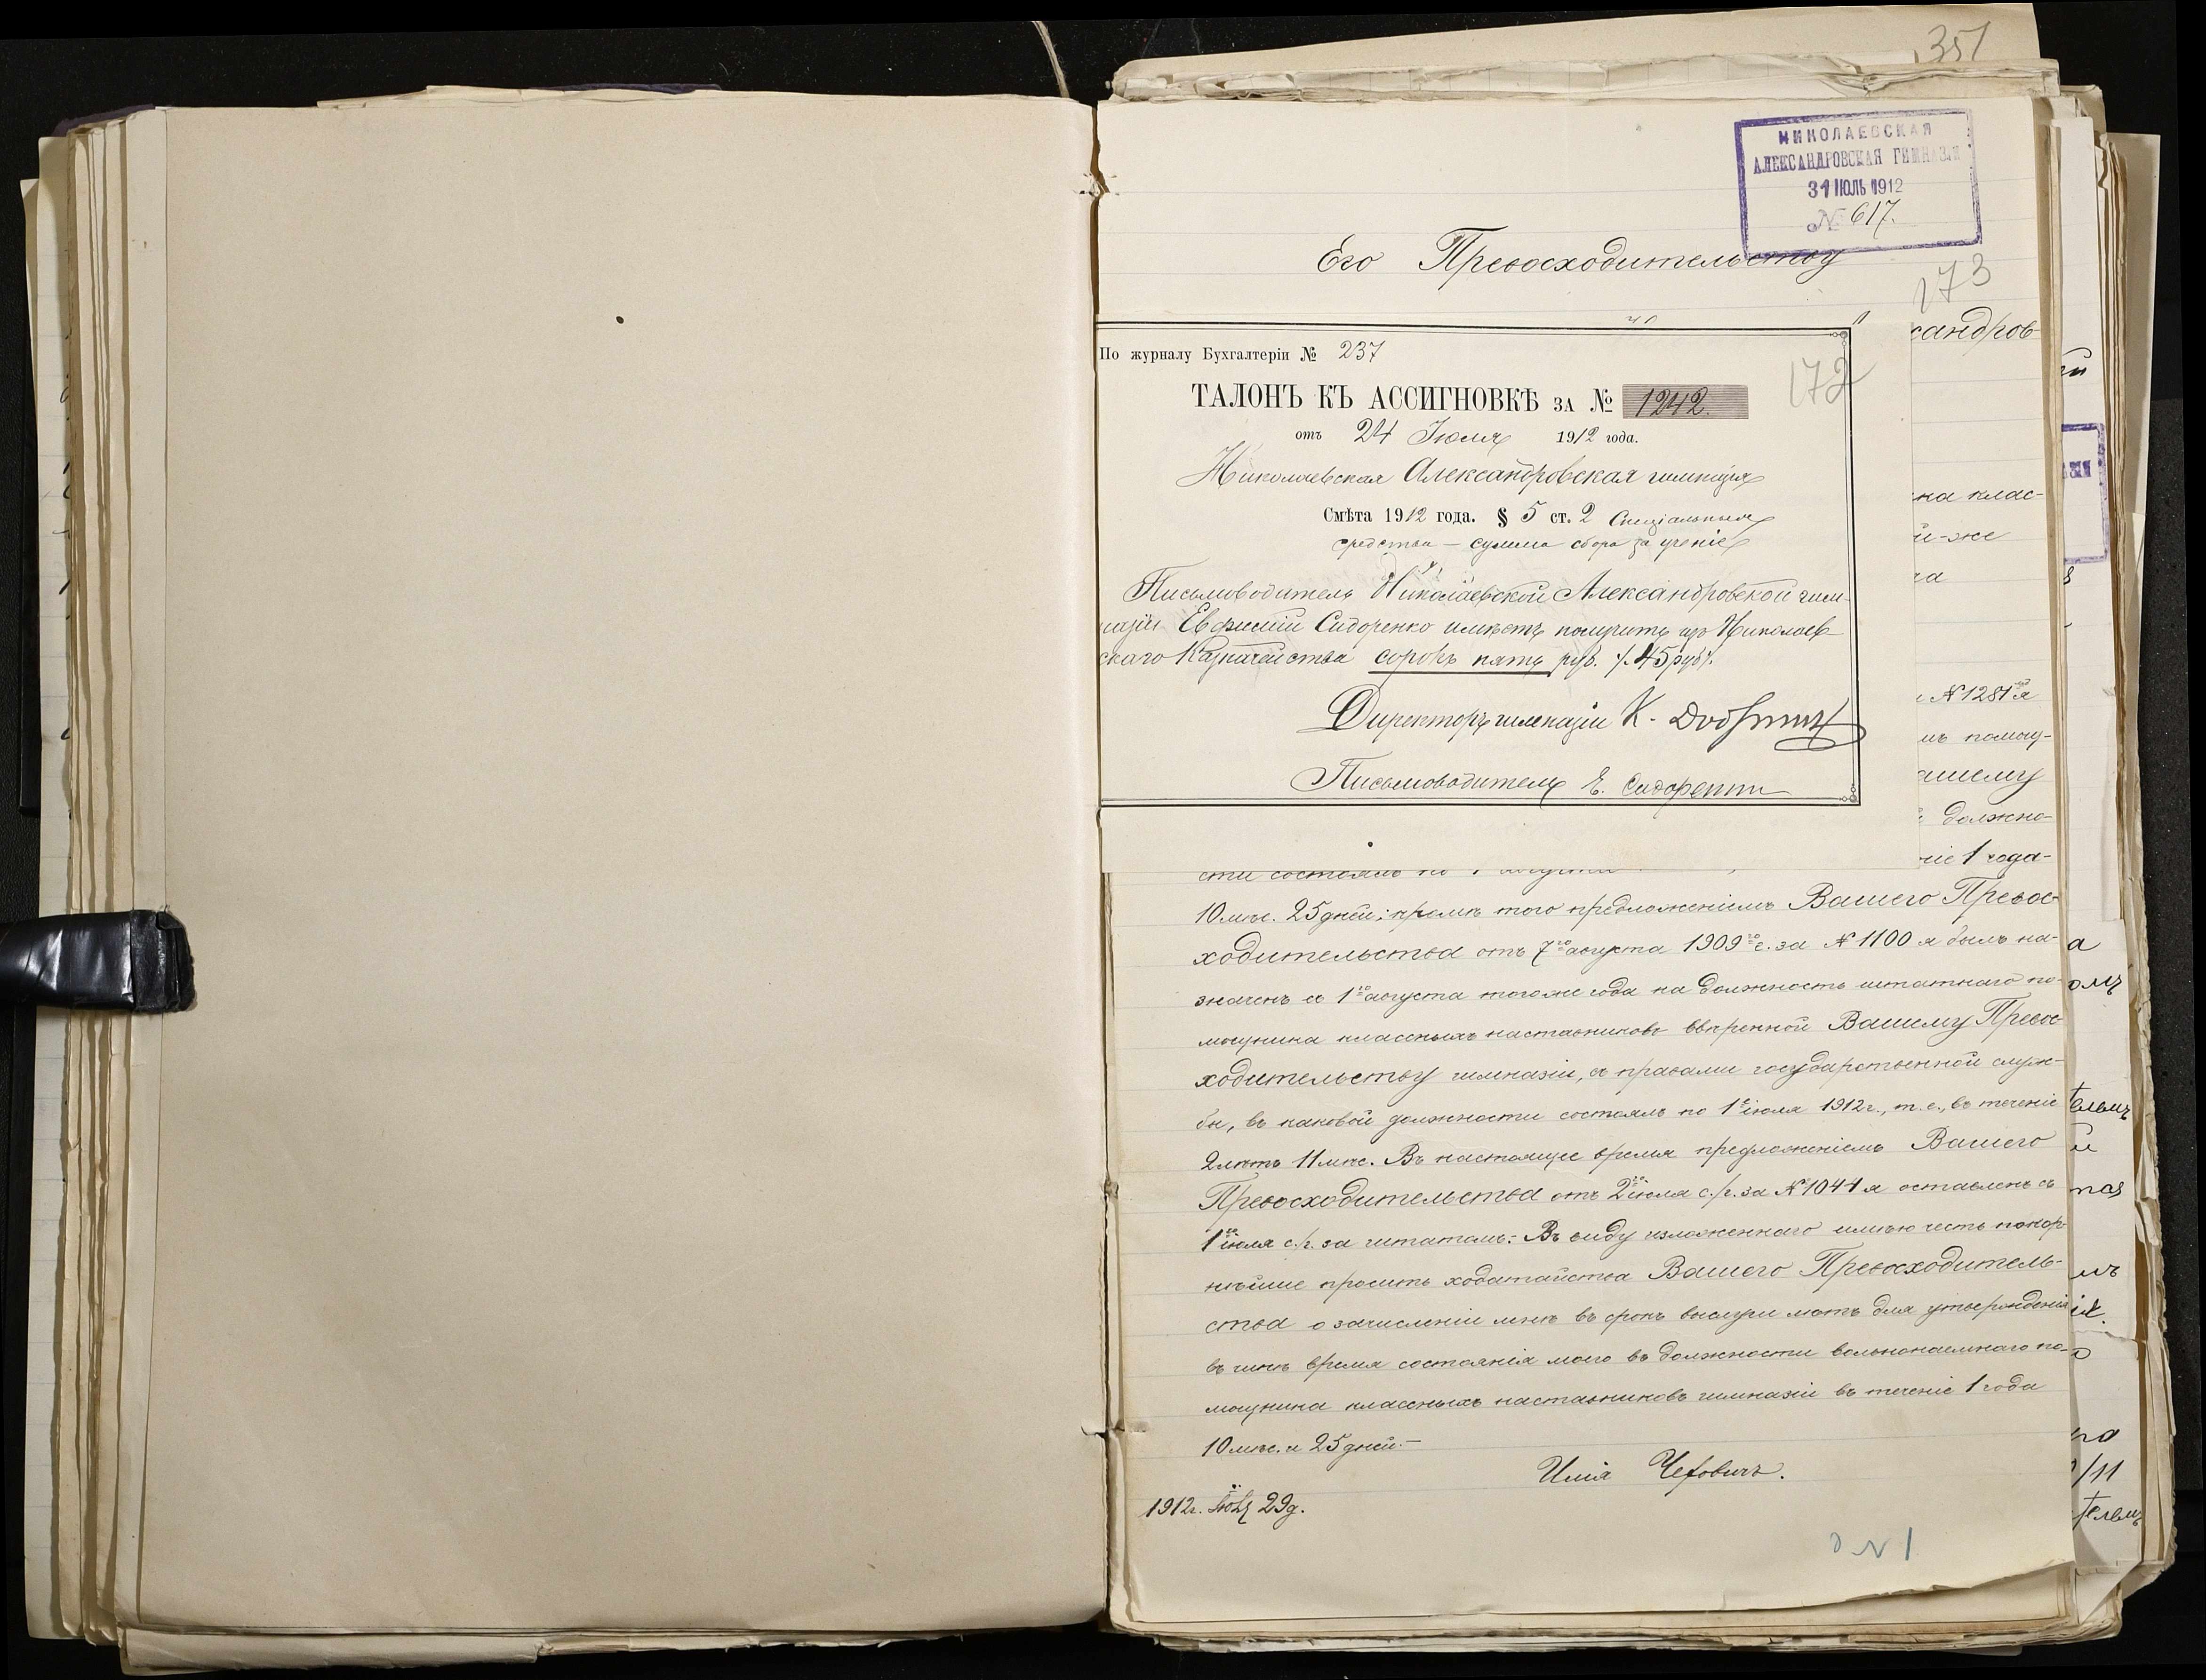 351
НИКОЛАЕВСКАЯ
АЛЕКСАНДРОВСКАЯ ГИМНАЗІЯ
31 ІЮЛЬ 1912
№ 617.
Его Превосходительству
173
сандров-
По журналу Бухгалтеріи № 237
172
ТАЛОНЪ КЪ АССИГНОВКѢ ЗА № 1242.
отъ 24 Іюля 1912 года.
Николаевская Александровская гимназія
Смѣта 1912 года. § 5 ст. 2 Спеціальныя
средства — сумма сбора за ученіе
Письмоводитель Николаевской Александровской гим-
назіи Евфимій Сидоренко имѣетъ получить изъ Николаев
скаго Казначейства сорокъ пять руб. /.45 руб/.
Директоръ гимназіи К.
Письмоводитель Е. Сидоренко
на клас-
й-же
на
№ 1281 я
мъ помощ-
ашему
должно-
ніе 1 года
сти состоялъ по 1 августа
10 мѣс. 25 дней; кромѣ того предложеніемъ Вашего Превос-
ходительства отъ 7го августа 1909го г. за № 1100 я былъ на-
значенъ съ 1го августа того же года на должность штатнаго по-
мощника классныхъ наставниковъ ввѣренной Вашему Превос-
ходительству гимназіи, съ правами государственной служ-
бы, въ каковой должности состоялъ по 1е іюля 1912 г., т. е., въ теченіе
2 лѣтъ 11 мѣс. Въ настоящее время предложеніемъ Вашего
Превосходительства отъ 2го іюля с./г. за № 1041 я оставленъ съ
1го іюля с./г. за штатомъ.- Въ виду изложеннаго имѣю честь покор-
нѣйше просить ходатайства Вашего Превосходитель-
ства о зачисленіи мнѣ въ срокъ выслуги лѣтъ для утвержденія
въ чинѣ время состоянія моего въ должности вольнонаемнаго по-
мощника классныхъ наставниковъ гимназіи въ теченіе 1 года
10 мѣс. и 25 дней.-
Илія Чехович.
1912 г. Іюля 29 д.